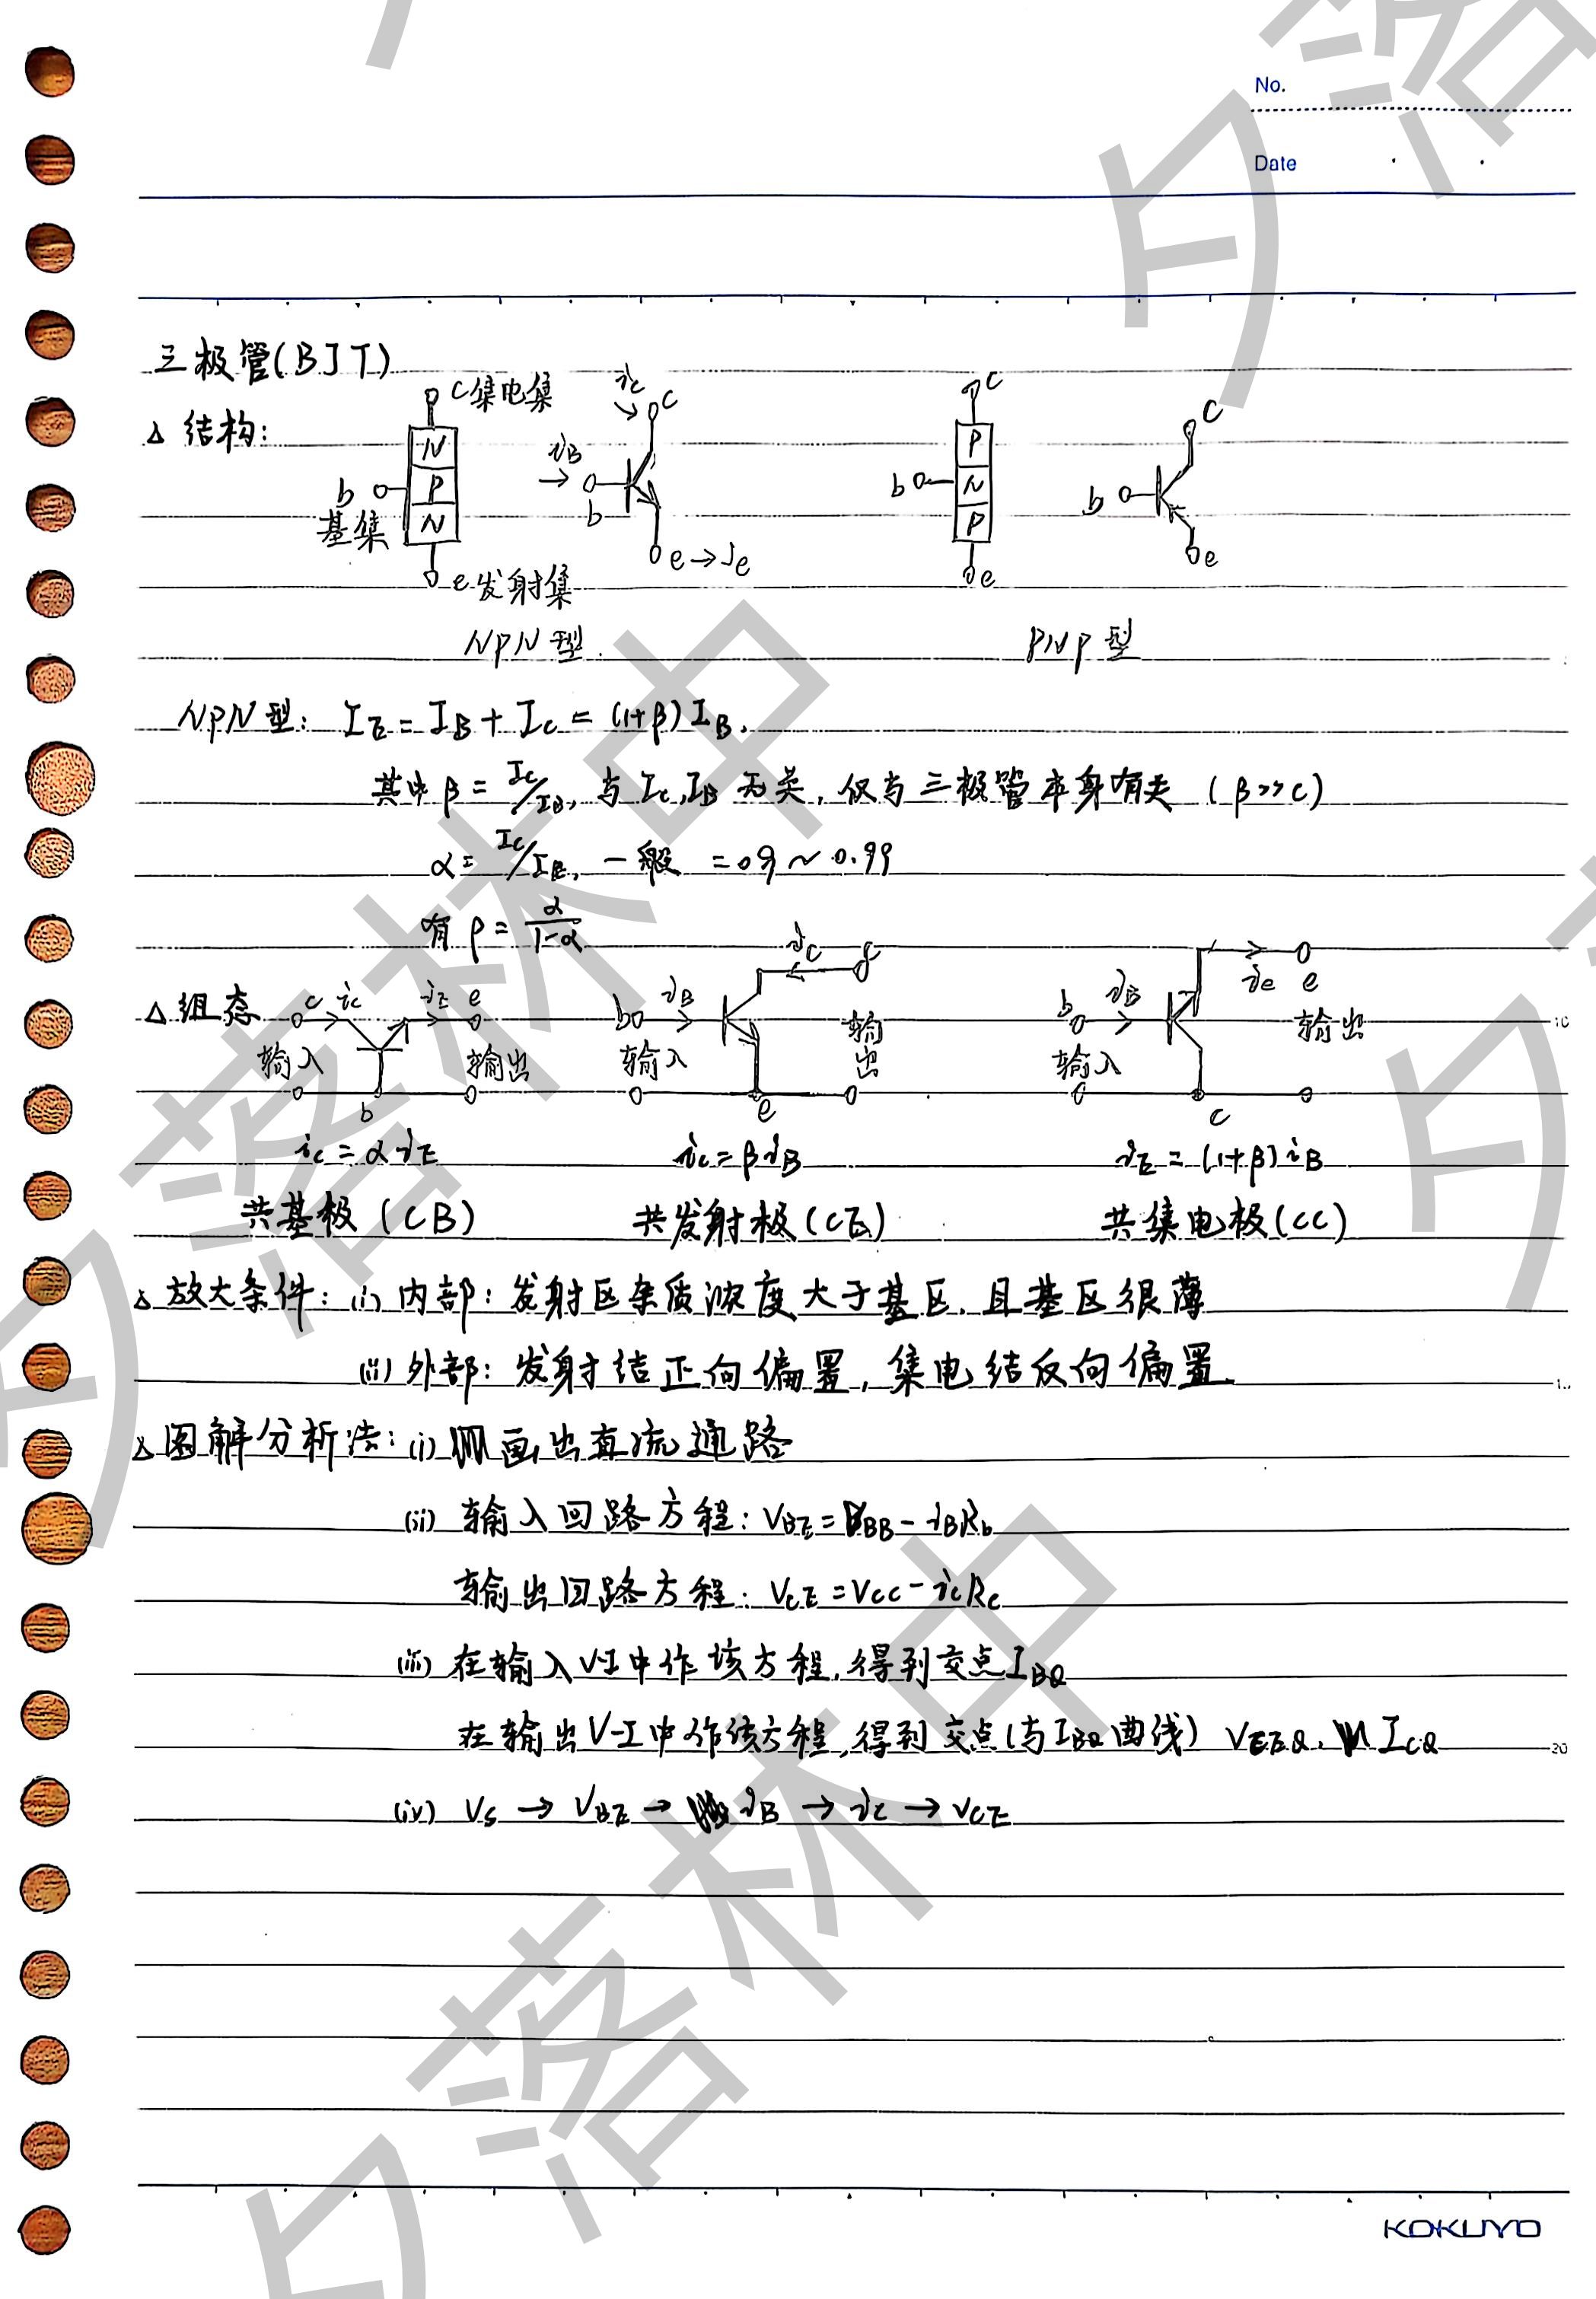 No.
Date
三极管(BJT)
△ 结构:
c 集电集
N
P
N
b
基集
e 发射集
NPN型
ic
c
iB
b
e → ie
c
P
N
P
b
e
PNP型
c
b
e
NPN型: IE = IB + IC = (1+β) IB.
其中 β = IC/IB, 与 IC, IB 无关, 仅与三极管本身有关 (β>>C)
α = IC/IE, 一般 = 0.9 ~ 0.99
有 β = α/1-α
△ 组态
c ic iE e
输入 输出
b
ic = α iE
共基极 (CB)
b iB ic c
输入 输出
e
ic = β iB
共发射极 (CE)
b iB ie e
输入 输出
c
iE = (1+β) iB
共集电极 (CC)
△ 放大条件: (i) 内部: 发射区杂质浓度大于基区, 且基区很薄
(ii) 外部: 发射结正向偏置, 集电结反向偏置.
△ 图解分析法: (i) 画出直流通路
(ii) 输入回路方程: VBE = VBB - iBRb
输出回路方程: VCE = VCC - icRc
(iii) 在输入V-I中作该方程, 得到交点 IBQ
在输出V-I中作该方程, 得到交点(与IBQ曲线) VCEQ, ICQ
(iv) Vs → VBE → iB → ic → VCE
10
20
KOKUYO
夕落林中